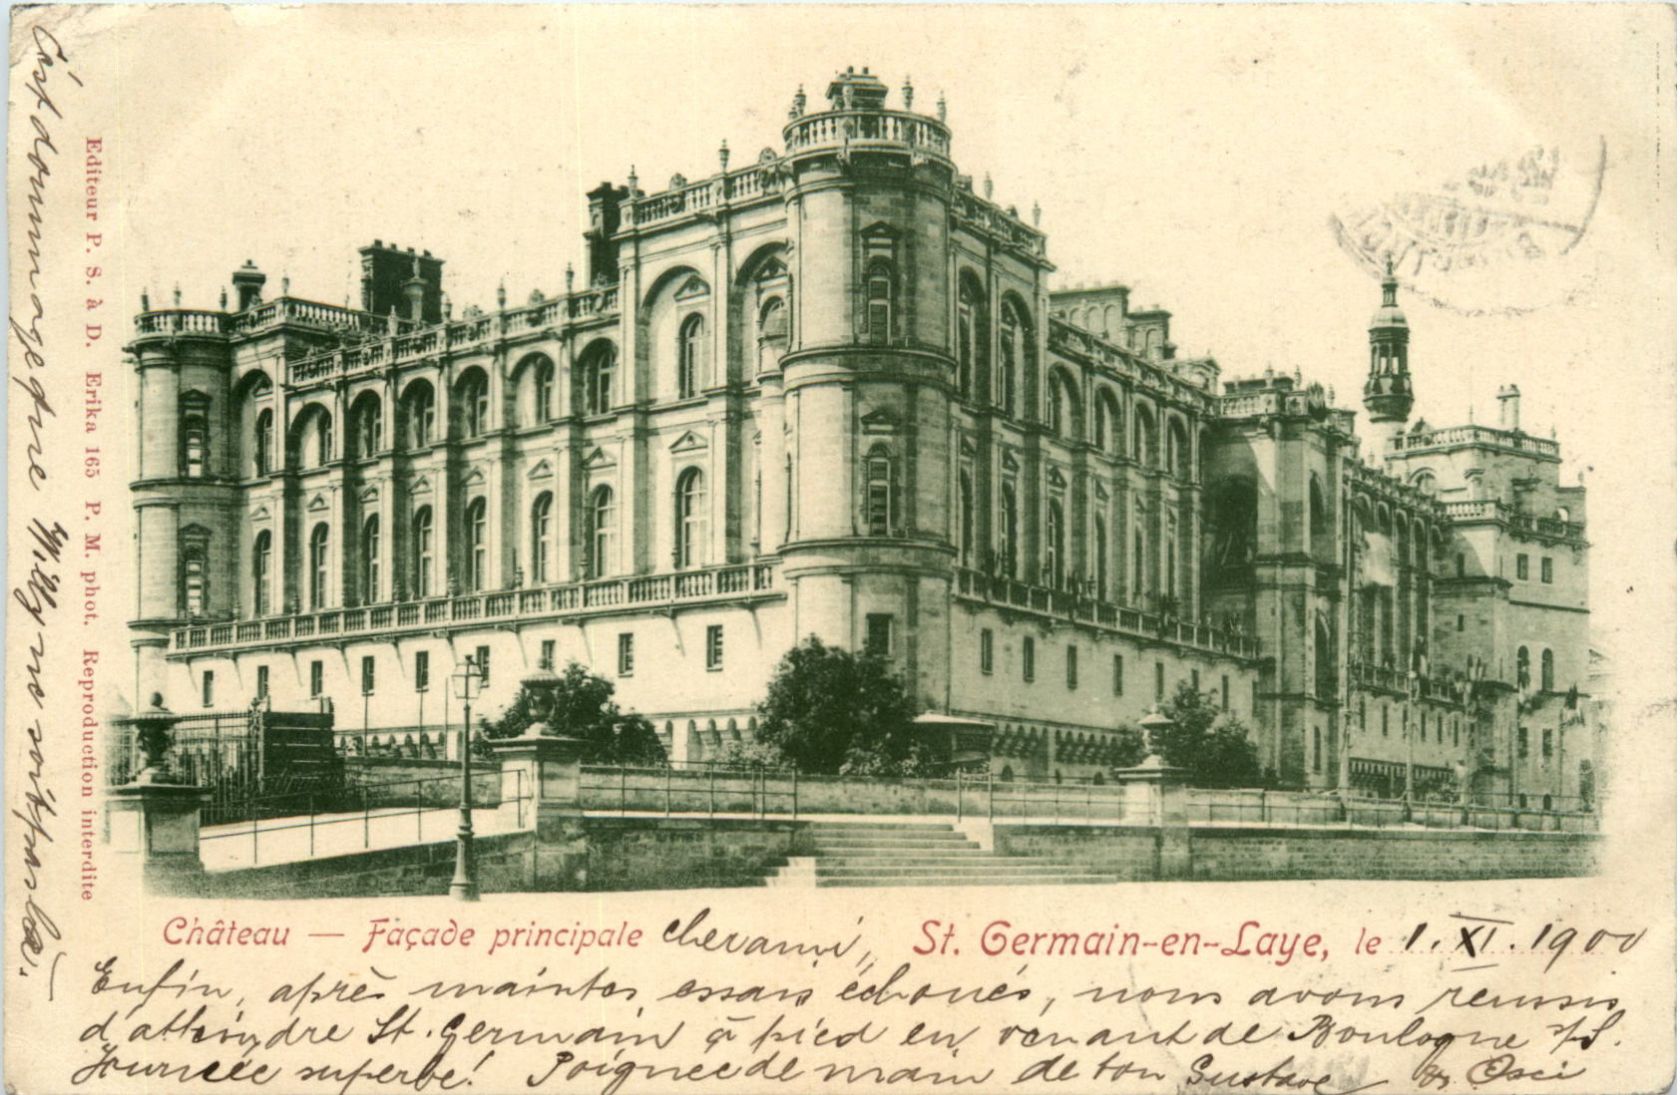 C'est dommage que Willy ne soit pas là!
Editeur P. S. à D. Erika 165 P. M. phot. Reproduction interdite
Château — Façade principale cher ami, St. Germain-en-Laye, le 1. XI. 1900
Enfin, après maintes essais échoués, nous avons réussis
d'atteindre St. Germain à pied en venant de Boulogne s/S.
Journée superbe! Poignée de main de ton Gustave & Osci